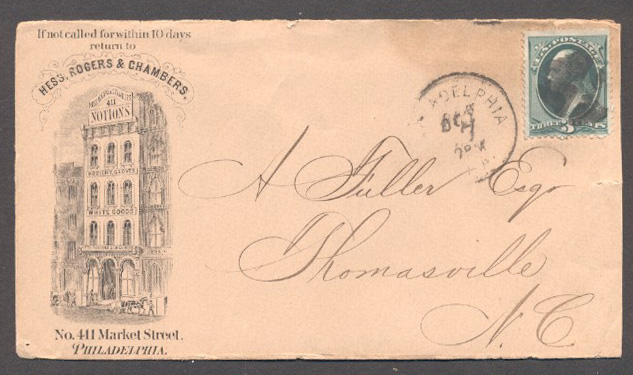 If not called for within 10 days
return to
HESS, ROGERS & CHAMBERS,
411
NOTIONS
HOSIERY GLOVES
WHITE GOODS
No. 411 Market Street,
PHILADELPHIA.
ADELPHIA
DEC
7
U.S. POSTAGE
THREE 3 CENTS
A Fuller Esqr
Thomasville
N.C.